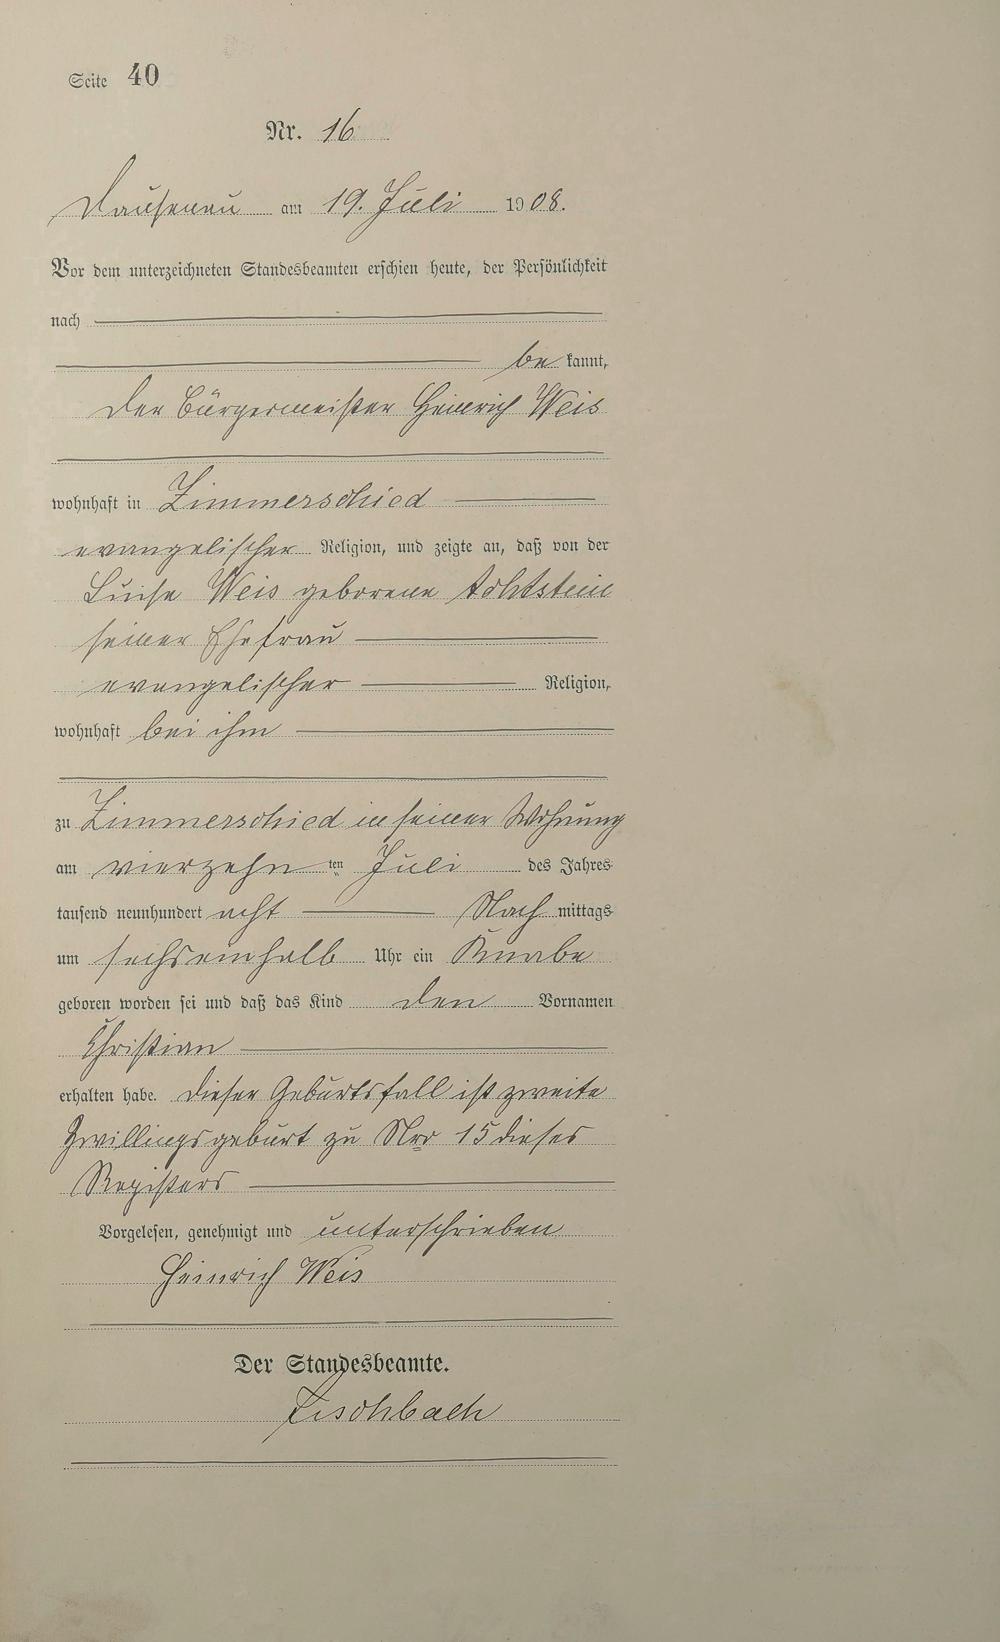 Seite 40
Nr. 16
Dausenau am 19. Juli 1908.
Vor dem unterzeichneten Standesbeamten erschien heute, der Persönlichkeit
nach
be kannt,
der Bürgermeister Heinrich Weis
wohnhaft in Zimmerschied
evangelischer Religion, und zeigte an, daß von der
Luise Weis geborene Achtstein
seiner Ehefrau
evangelischer Religion,
wohnhaft bei ihm
zu Zimmerschied in seiner Wohnung
am vierzehn ten Juli des Jahres
tausend neunhundert acht Nach mittags
um sechseinhalb Uhr ein Knabe
geboren worden sei und daß das Kind den Vornamen
Christian
erhalten habe. Dieser Geburtsfall ist zweite
Zwillingsgeburt zu Nro 15 dieses
Registers
Vorgelesen, genehmigt und unterschrieben
Heinrich Weis
Der Standesbeamte.
Fischbach